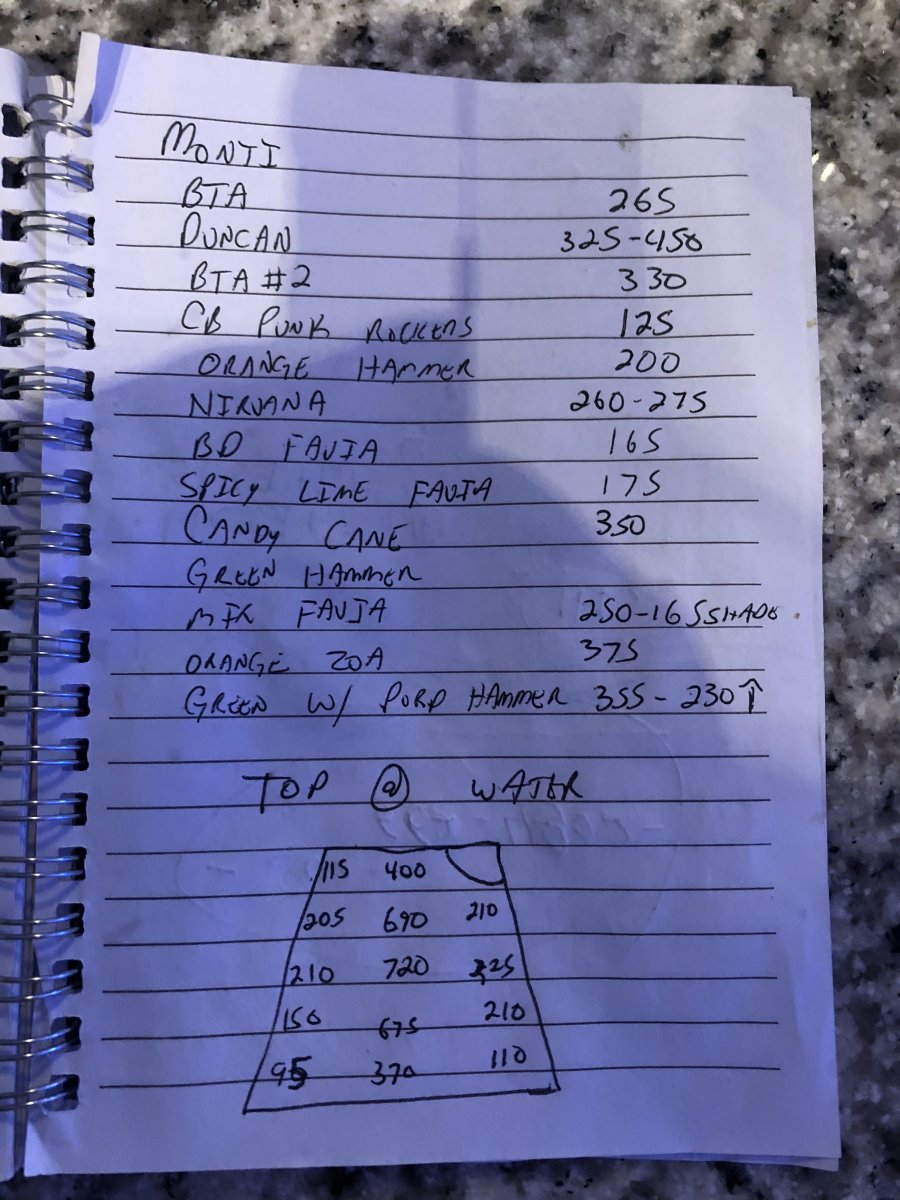 MONTI
BTA 265
DUNCAN 325-450
BTA #2 330
CB PUNK ROCKERS 125
ORANGE HAMMER 200
NIRVANA 260-275
BD FAVIA 165
SPICY LIME FAVIA 175
CANDY CANE 350
GREEN HAMMER
MIX FAVIA 250-165 SHADE
ORANGE ZOA 375
GREEN W/ PURP HAMMER 355-230↑
TOP @ WATER
115 400
205 690 210
210 720 225
150 675 210
95 370 110